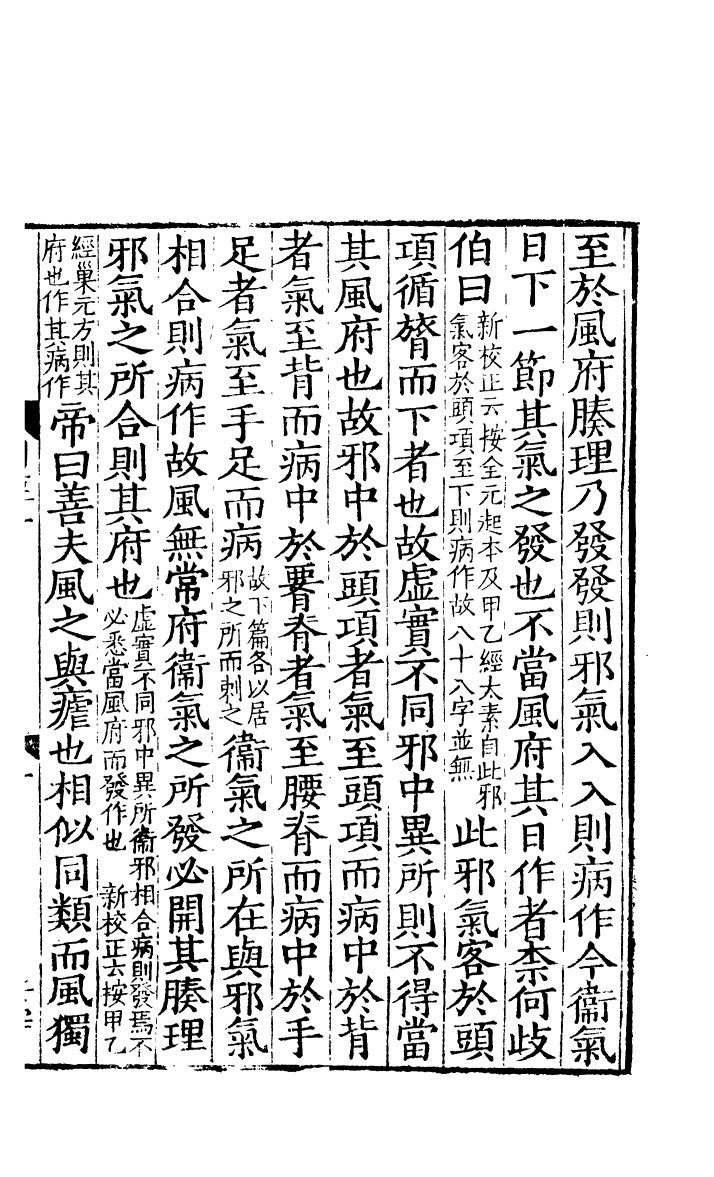 至於風府腠理乃發發則邪氣入入則病作今衞氣
日下一節其氣之發也不當風府其日作者柰何歧
伯曰新校正云按全元起本及甲乙經太素自此邪氣客於頭項至下則病作故八十八字並無此邪氣客於頭
項循膂而下者也故虛實不同邪中異所則不得當
其風府也故邪中於頭項者氣至頭項而病中於背
者氣至背而病中於腰脊者氣至腰脊而病中於手
足者氣至手足而病故下篇各以居邪之所而刺之衞氣之所在與邪氣
相合則病作故風無常府衞氣之所發必開其腠理
邪氣之所合則其府也虛實不同邪中異所衞邪相合病則發焉不必悉當風府而發作也新校正云按甲乙
經巢元方則其府也作其病作帝曰善夫風之與瘧也相似同類而風獨